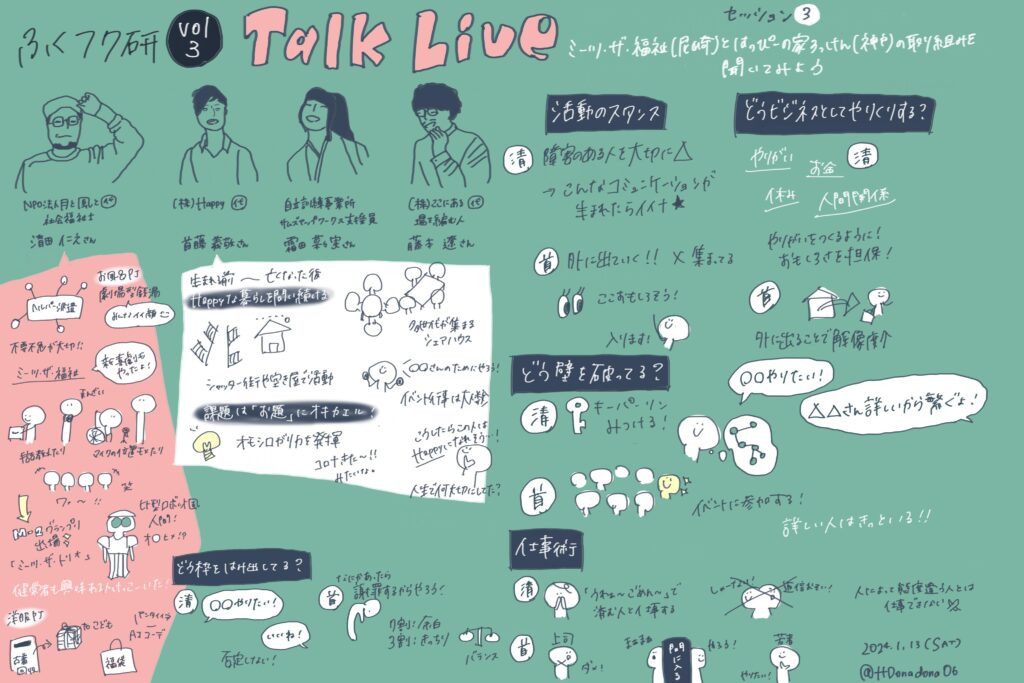 ふくフク研
vol
3
Talk Live
セッション 3
ミーツ・ザ・福祉(尼崎)とはっぴーの家ろっけん(神戸)の取り組みを
聞いてみよう
NPO法人月と風と 代
社会福祉士
清田 仁之さん
(株)Happy 代
首藤 義敬さん
自立訓練事業所
支援員
霜田
(株)ここにある 代
場を編む人
藤本 遼さん
活動のスタンス
清
障害のある人を大切に△
→こんなコミュニケーションが
生まれたらイイナ★
首
外に出ていく!! × 集まってる
ここおもしろそう!
入ります!
どうビジネスとしてやりくりする?
やりがい
お金
清
休み
人間関係
やりがいをつくるように!
おもしろさを担保!
首
外に出ることで解像度↑
お風呂PJ
劇場型銭湯
みんなイイ顔
ヘルパー派遣
不要不急が大切!!
ミーツ・ザ・福祉
新喜劇も
やったよ!
まんざい
手話教えたり
マイクの位置もどったり
ワァ〜!!
M-1グランプリ
出場
「ミーツ・ザ・トリオ」
ヒト型ロボット風
人間!
健常者も興味ある人けっこういた!
洋服PJ
古着
子ども
AIコーデ
福袋
生まれる前〜亡くなった後
Happyな暮らしを問い続ける
多世代が集まる
シェアハウス
シャッター街や空き屋で活動
〇〇さんのためにやろう!
イベント行事は大人数
課題は「お題」にオキカエル!
オモシロガリ力を発揮
コロナきた〜!!
みたいな。
こうしたらこの人は
Happyになれそう…!
人生で何大切にしてた?
どう壁を破ってる?
清
キーパーソン
みつける!
〇〇やりたい!
△△さん詳しいから繋ぐよ!
首
イベントに参加する!
詳しい人はきっといる!!
どう枠をはみ出してる?
清
〇〇やりたい!
いいね!
否定しない!
首
なにかあったら
謝罪するからやろう!
7割:余白
3割:きっちり
バランス
仕事術
清
「うわぁ〜ごめん〜」で
済む人と仕事する
しゃーない!
返信おそい!
人によって態度違う人とは
仕事できない
首
上司
ダメ!
まぁまぁ
間に入る
やろう!
若者
やりたい!
2024.1.13 (SAT)
@HDonadona06